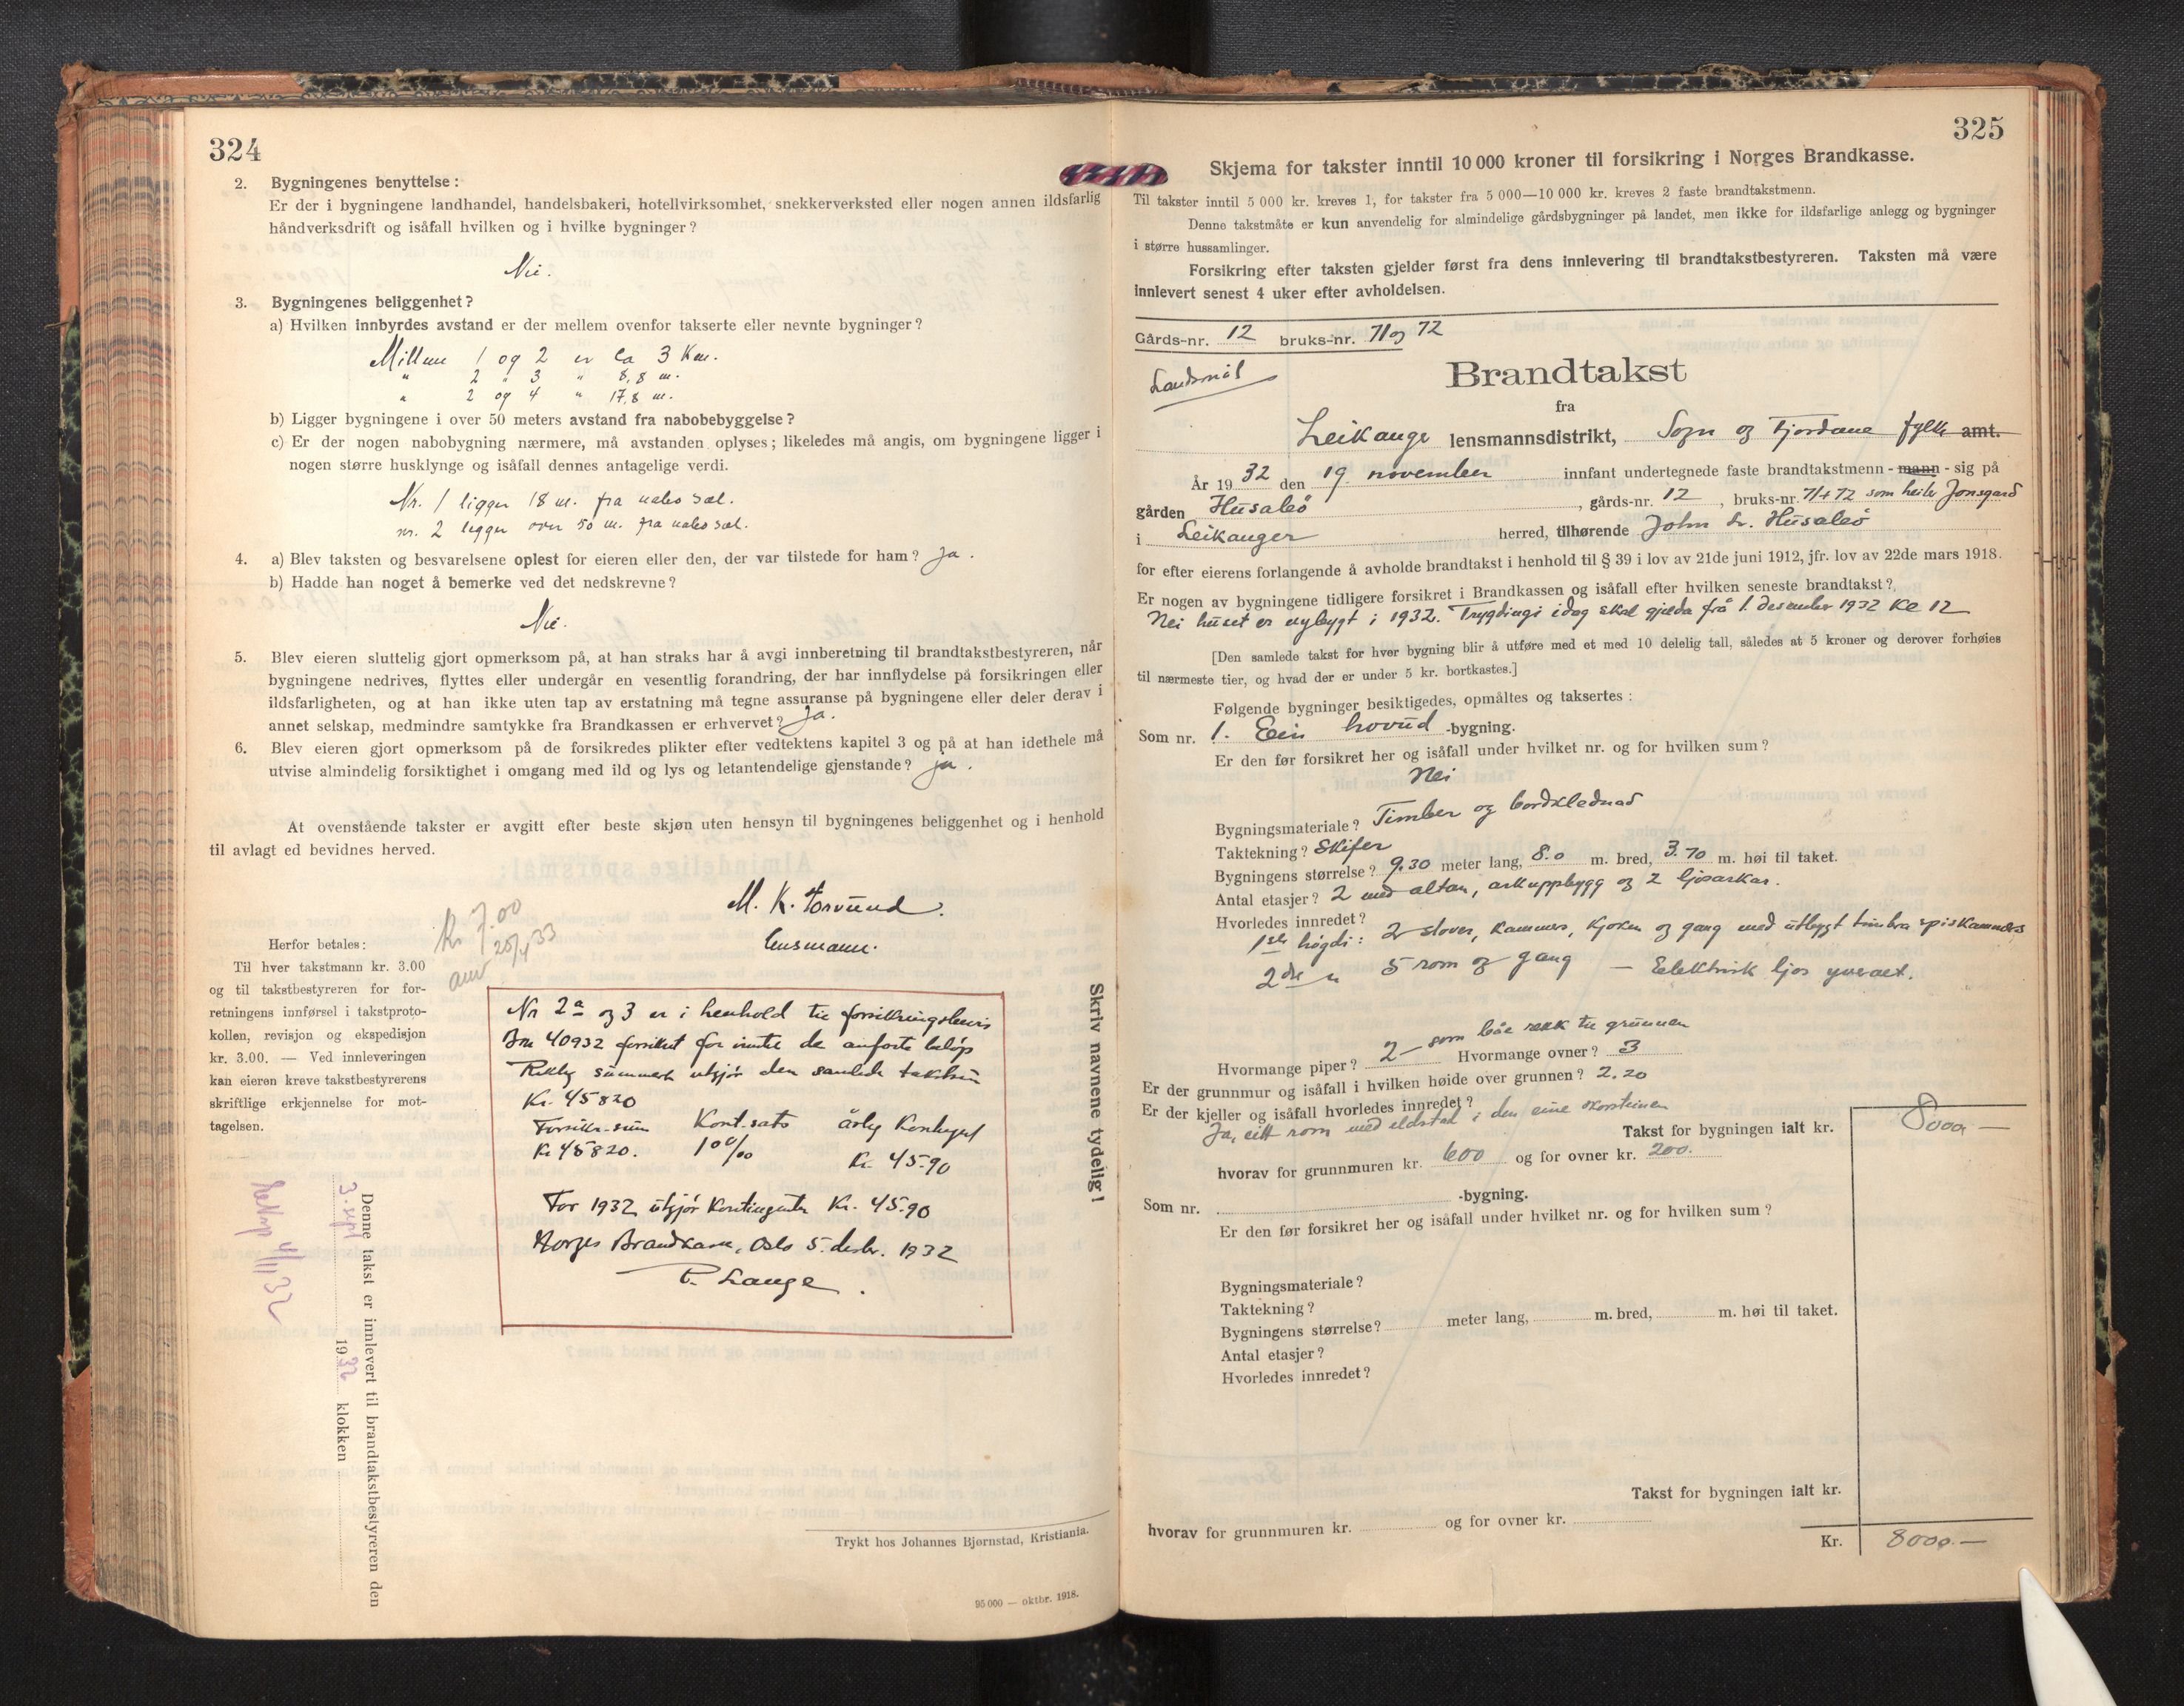 324
2. Bygningenes benyttelse:
Er der i bygningene landhandel, handelsbakeri, hotellvirksomhet, snekkerverksted eller nogen annen ildsfarlig
håndverksdrift og isåfall hvilken og i hvilke bygninger?
Nei.
3. Bygningenes beliggenhet?
a) Hvilken innbyrdes avstand er der mellem ovenfor takserte eller nevnte bygninger?
Millum 1 og 2 er ca 3 Km.
" 2 " 3 " 8,8 m.
" 2 og 4 " 17,8 m.
b) Ligger bygningene i over 50 meters avstand fra nabobebyggelse?
c) Er der nogen nabobygning nærmere, må avstanden oplyses; likeledes må angis, om bygningene ligger i
nogen større husklynge og isåfall dennes antagelige verdi.
Nr. 1 ligger 18 m. fra nabo sæl.
nr. 2 ligger over 50 m. fra nabo sæl.
4. a) Blev taksten og besvarelsene oplest for eieren eller den, der var tilstede for ham? Ja.
b) Hadde han noget å bemerke ved det nedskrevne?
Nei.
5. Blev eieren sluttelig gjort opmerksom på, at han straks har å avgi innberetning til brandtakstbestyreren, når
bygningene nedrives, flyttes eller undergår en vesentlig forandring, der har innflydelse på forsikringen eller
ildsfarligheten, og at han ikke uten tap av erstatning må tegne assuranse på bygningene eller deler derav i
annet selskap, medmindre samtykke fra Brandkassen er erhvervet? Ja.
6. Blev eieren gjort opmerksom på de forsikredes plikter efter vedtektens kapitel 3 og på at han idethele må
utvise almindelig forsiktighet i omgang med ild og lys og letantendelige gjenstande? Ja.
At ovenstående takster er avgitt efter beste skjøn uten hensyn til bygningenes beliggenhet og i henhold
til avlagt ed bevidnes herved.
M. K. Torvund.
lensmann.
Kr 7.00
25/4 33
Herfor betales:
Til hver takstmann kr. 3.00
og til takstbestyreren for for-
retningens innførsel i takstproto-
kollen, revisjon og ekspedisjon
kr. 3.00. — Ved innleveringen
kan eieren kreve takstbestyrerens
skriftlige erkjennelse for mot-
tagelsen.
Nr 2a og 3 er i henhold til forsikringsbevis
40932 forsikret for de anførte beløp
summert utgjør den samlede
Kr. 45820
Forsikr-sum Kont.sats årlig
Kr 45820. 1 o/oo Kr. 45.90
For 1932 utgjør kontingenten Kr. 45.90
Norges Brandkasse, Oslo 5. desbr. 1932
P. Lange
Denne takst er innlevert til brandtakstbestyreren den
3. sept 1932 klokken
4/1 32
Skriv navnene tydelig!
Trykt hos Johannes Bjørnstad, Kristiania.
95 000 — oktbr. 1918.
325
Skjema for takster inntil 10 000 kroner til forsikring i Norges Brandkasse.
Til takster inntil 5 000 kr. kreves 1, for takster fra 5 000—10 000 kr. kreves 2 faste brandtakstmenn.
Denne takstmåte er kun anvendelig for almindelige gårdsbygninger på landet, men ikke for ildsfarlige anlegg og bygninger
i større hussamlinger.
Forsikring efter taksten gjelder først fra dens innlevering til brandtakstbestyreren. Taksten må være
innlevert senest 4 uker efter avholdelsen.
Gårds-nr. 12 bruks-nr. 71 og 72
Landsmål
Brandtakst
fra
Leikanger lensmannsdistrikt, Sogn og Fjordane fylke amt.
År 1932 den 19. november innfant undertegnede faste brandtakstmenn - mann - sig på
gården Husabø, gårds-nr. 12, bruks-nr. 71+72 som heiter Jonsgard
i Leikanger herred, tilhørende John L. Husabø
for efter eierens forlangende å avholde brandtakst i henhold til § 39 i lov av 21de juni 1912, jfr. lov av 22de mars 1918.
Er nogen av bygningene tidligere forsikret i Brandkassen og isåfall efter hvilken seneste brandtakst?
Nei huset er nybygt i 1932. Trygdingi idag skal gjelda frå 1. desember 1932 Kl 12
[Den samlede takst for hver bygning blir å utføre med et med 10 delelig tall, således at 5 kroner og derover forhøies
til nærmeste tier, og hvad der er under 5 kr. bortkastes.]
Følgende bygninger besiktigedes, opmåltes og taksertes:
Som nr. 1. Ein hovud -bygning.
Er den før forsikret her og isåfall under hvilket nr. og for hvilken sum?
Nei
Bygningsmateriale? Timber og bordklednad
Taktekning? Skifer
Bygningens størrelse? 9.30 meter lang, 8.0 m. bred, 3.70 m. høi til taket.
Antal etasjer? 2 med altan, arkuppbygg og 2 ljosarkar.
Hvorledes innredet?
1ste høgdi: 2 stover, kammers, kjøken og gang med utbygt timbra spiskammers
2dre " 5 rom og gang — Elektrisk ljos yveralt.
Hvormange piper? 2 — som båe rekk til grunnen Hvormange ovner? 3
Er der grunnmur og isåfall i hvilken høide over grunnen? 2.20
Er der kjeller og isåfall hvorledes innredet?
Ja, eitt rom med eldstad i den eine skorsteinen
Takst for bygningen ialt kr. 8000 —
hvorav for grunnmuren kr. 600 og for ovner kr. 200.
Som nr. -bygning.
Er den før forsikret her og isåfall under hvilket nr. og for hvilken sum?
Bygningsmateriale?
Taktekning?
Bygningens størrelse? meter lang, m. bred, m. høi til taket.
Antal etasjer?
Hvorledes innredet?
Takst for bygningen ialt kr.
hvorav for grunnmuren kr. og for ovner kr.
Kr. 8000.—